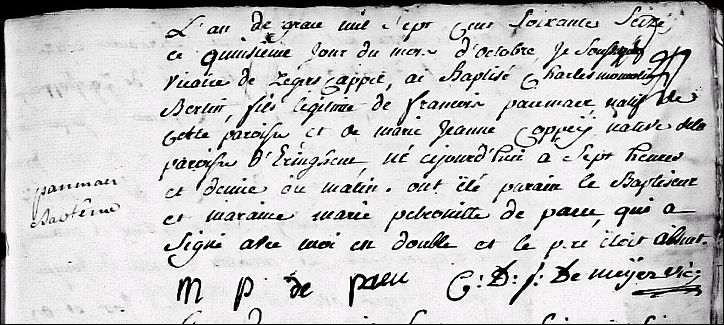 L'an de grace mil Sept Cent Soixante Seize
ce quinsieme jour du mois d'octobre je Soussigné
vicaire de Zegerscappel, ai Baptisé Charles mommolin
Bertin, fils legitime de francois panmaer natif de
cette paroisse et de marie Jeanne Cappeij native de la
paroisse d'Eringhem né cejourd'huij à Sept heures
et demie du matin. ont été parain le Baptiseur
et maraine marie petronille de paeu, qui a
Signé avec moi en double et le pere étoit absent.
panmaer
Baptême
M p de paeu C: D: j: De meijer vic: